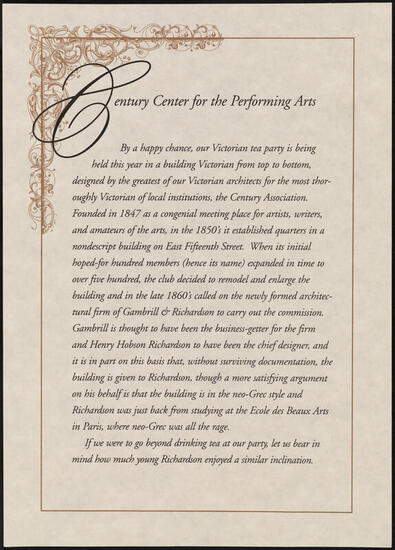 Century Center for the Performing Arts
By a happy chance, our Victorian tea party is being
held this year in a building Victorian from top to bottom,
designed by the greatest of our Victorian architects for the most thor-
oughly Victorian of local institutions, the Century Association.
Founded in 1847 as a congenial meeting place for artists, writers,
and amateurs of the arts, in the 1850's it established quarters in a
nondescript building on East Fifteenth Street.  When its initial
hoped-for hundred members (hence its name) expanded in time to
over five hundred, the club decided to remodel and enlarge the
building and in the late 1860's called on the newly formed architec-
tural firm of Gambrill & Richardson to carry out the commission.
Gambrill is thought to have been the business-getter for the firm
and Henry Hobson Richardson to have been the chief designer, and
it is in part on this basis that, without surviving documentation, the
building is given to Richardson, though a more satisfying argument
on his behalf is that the building is in the neo-Grec style and
Richardson was just back from studying at the Ecole des Beaux Arts
in Paris, where neo-Grec was all the rage.
If we were to go beyond drinking tea at our party, let us bear in
mind how much young Richardson enjoyed a similar inclination.